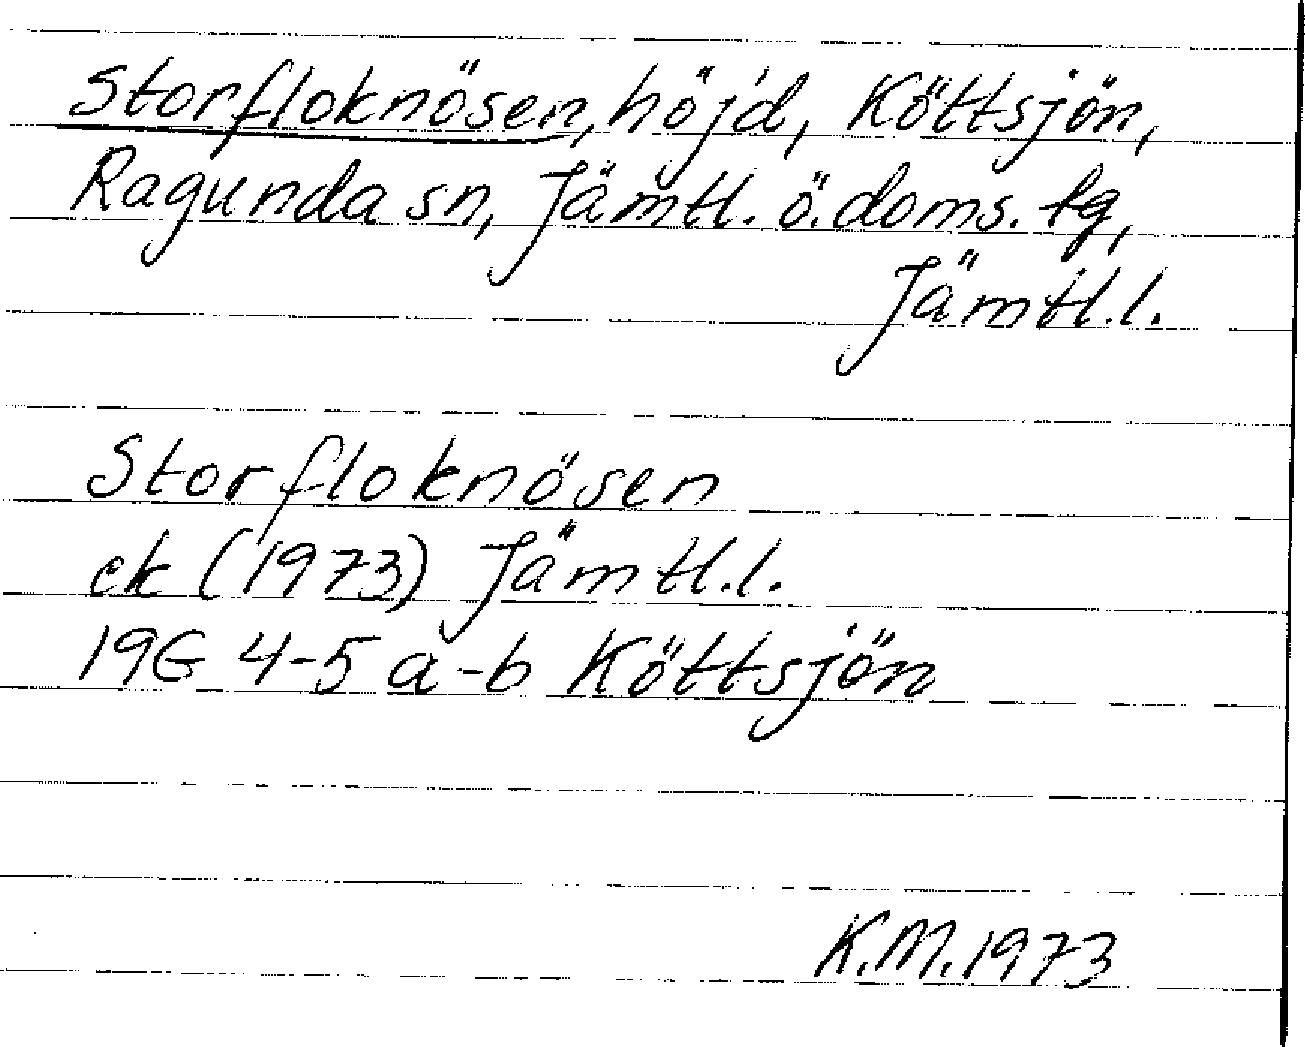 Storfloknösen, höjd, Köttsjön,
Ragunda sn, Jämtl. ö. doms. tg,
Jämtl. l.
Storfloknösen
ek (1973) Jämtl. l.
19G 4-5 a-b Köttsjön
K.M. 1973